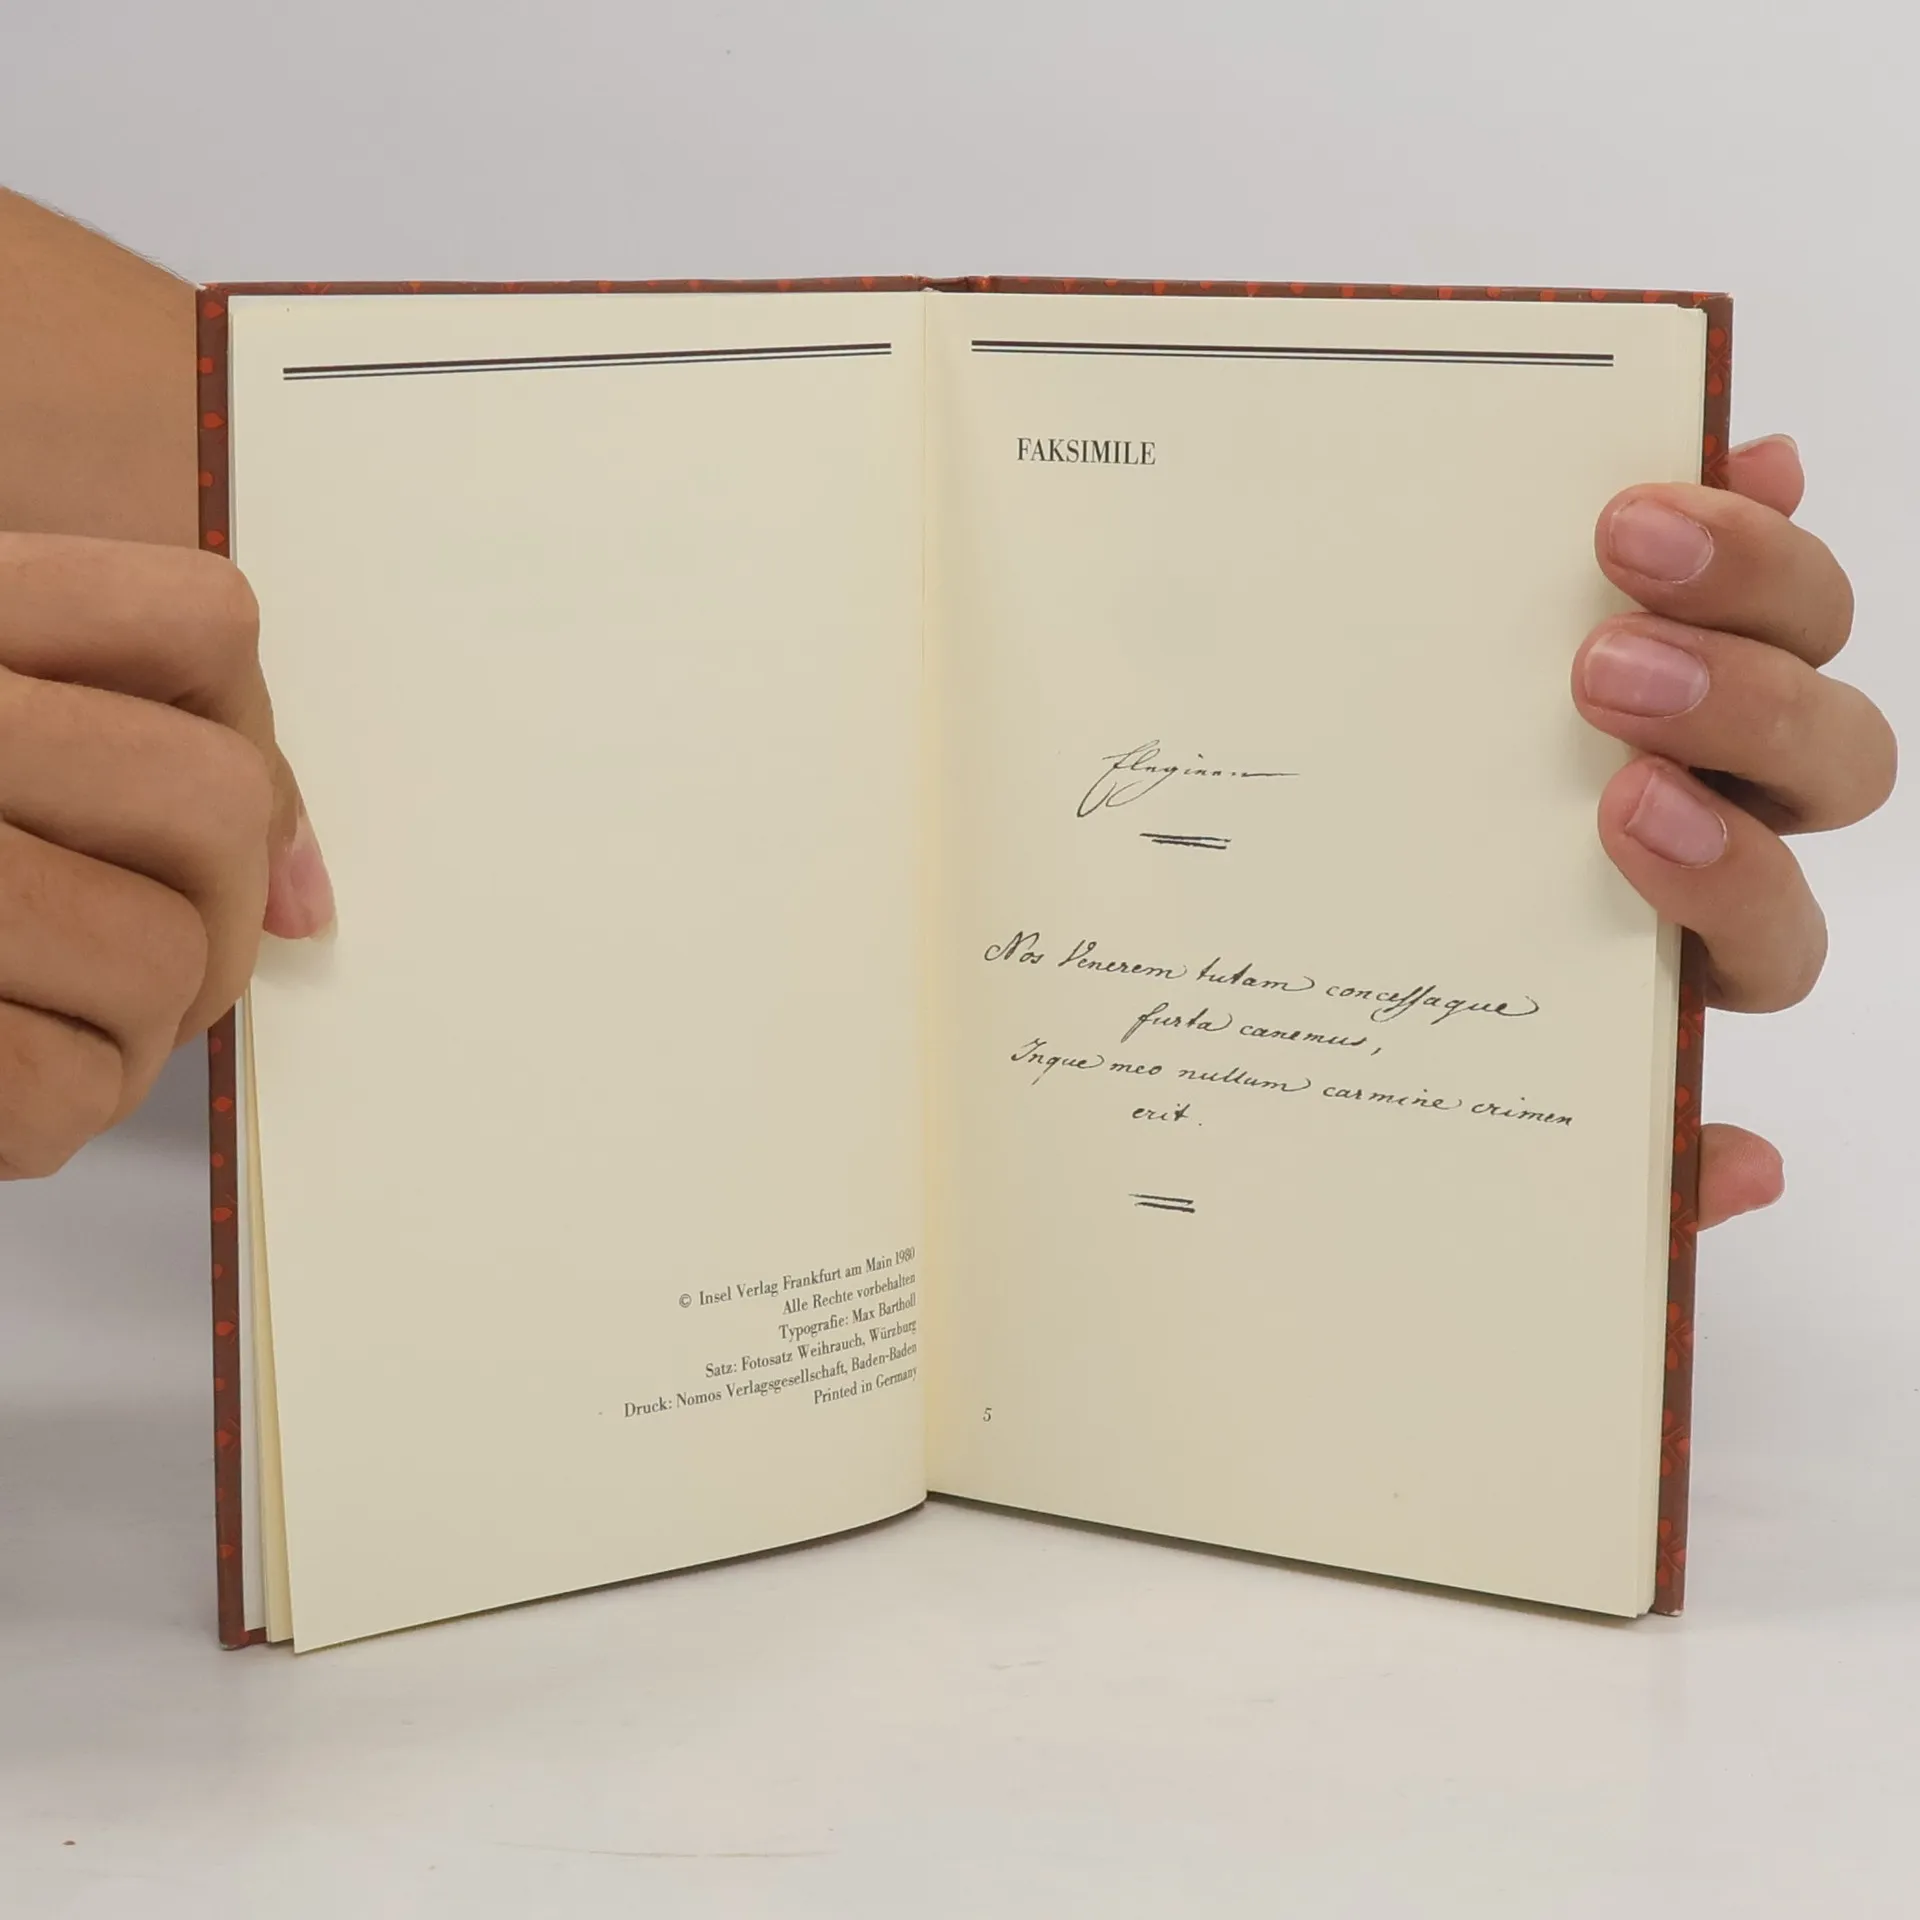 © Insel Verlag Frankfurt am Main 1980
Alle Rechte vorbehalten
Typografie: Max Bartholl
Satz: Fotosatz Weihrauch, Würzburg
Druck: Nomos Verlagsgesellschaft, Baden-Baden
Printed in Germany
FAKSIMILE
Nos Venerem tutam concessaque
furta canemus,
Inque meo nullum carmine crimen
erit.
5